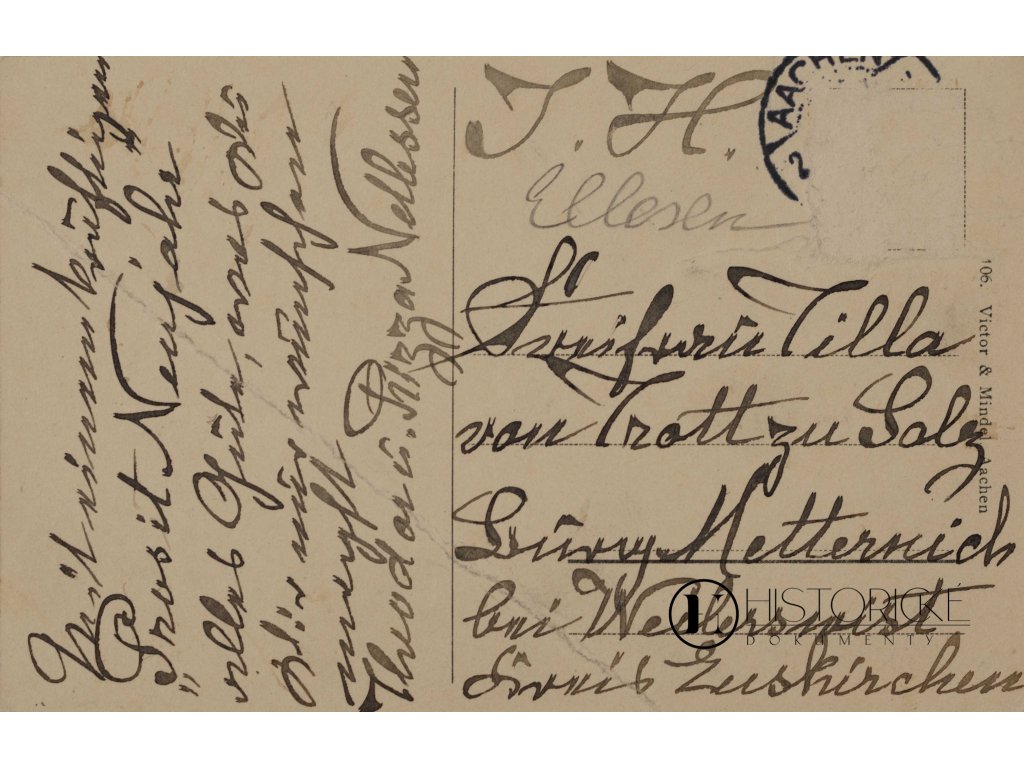 Mit einem kräftigen
"Prosit Neujahr"
alles Gute, was Du
Dir nur wünschen
magst
Theodor u. Nellessen
J. H.
Ellesen
AACHEN
2
Freifrau Tilla
von Trott zu Solz
Burg Metternich
bei Weilerswist
Kreis Euskirchen
106. Victor & Mindel, Aachen
HISTORICKÉ
DOKUMENTY